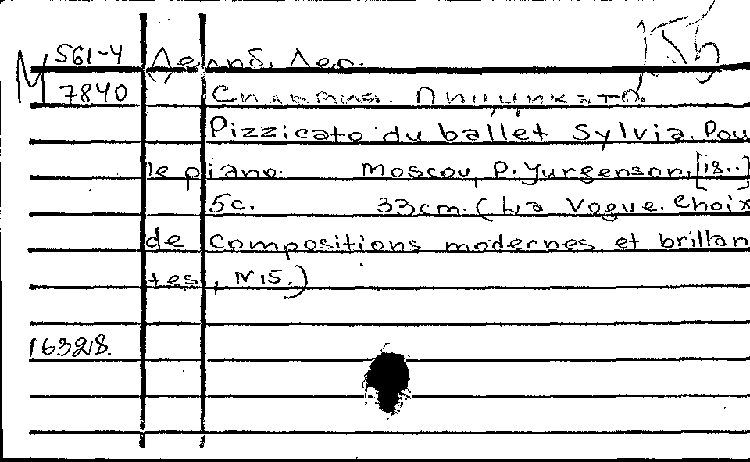 М 561-4 Делиб, Лео.
7840 Сильвия. Пиццикато.
Pizzicato du ballet Sylvia. Pou
le piano. Moscou, P. Yurgenson, [18..]
5c. 33cm. (La Vogue. Choix
de compositions modernes et brillan
tes, N15.)
16328.